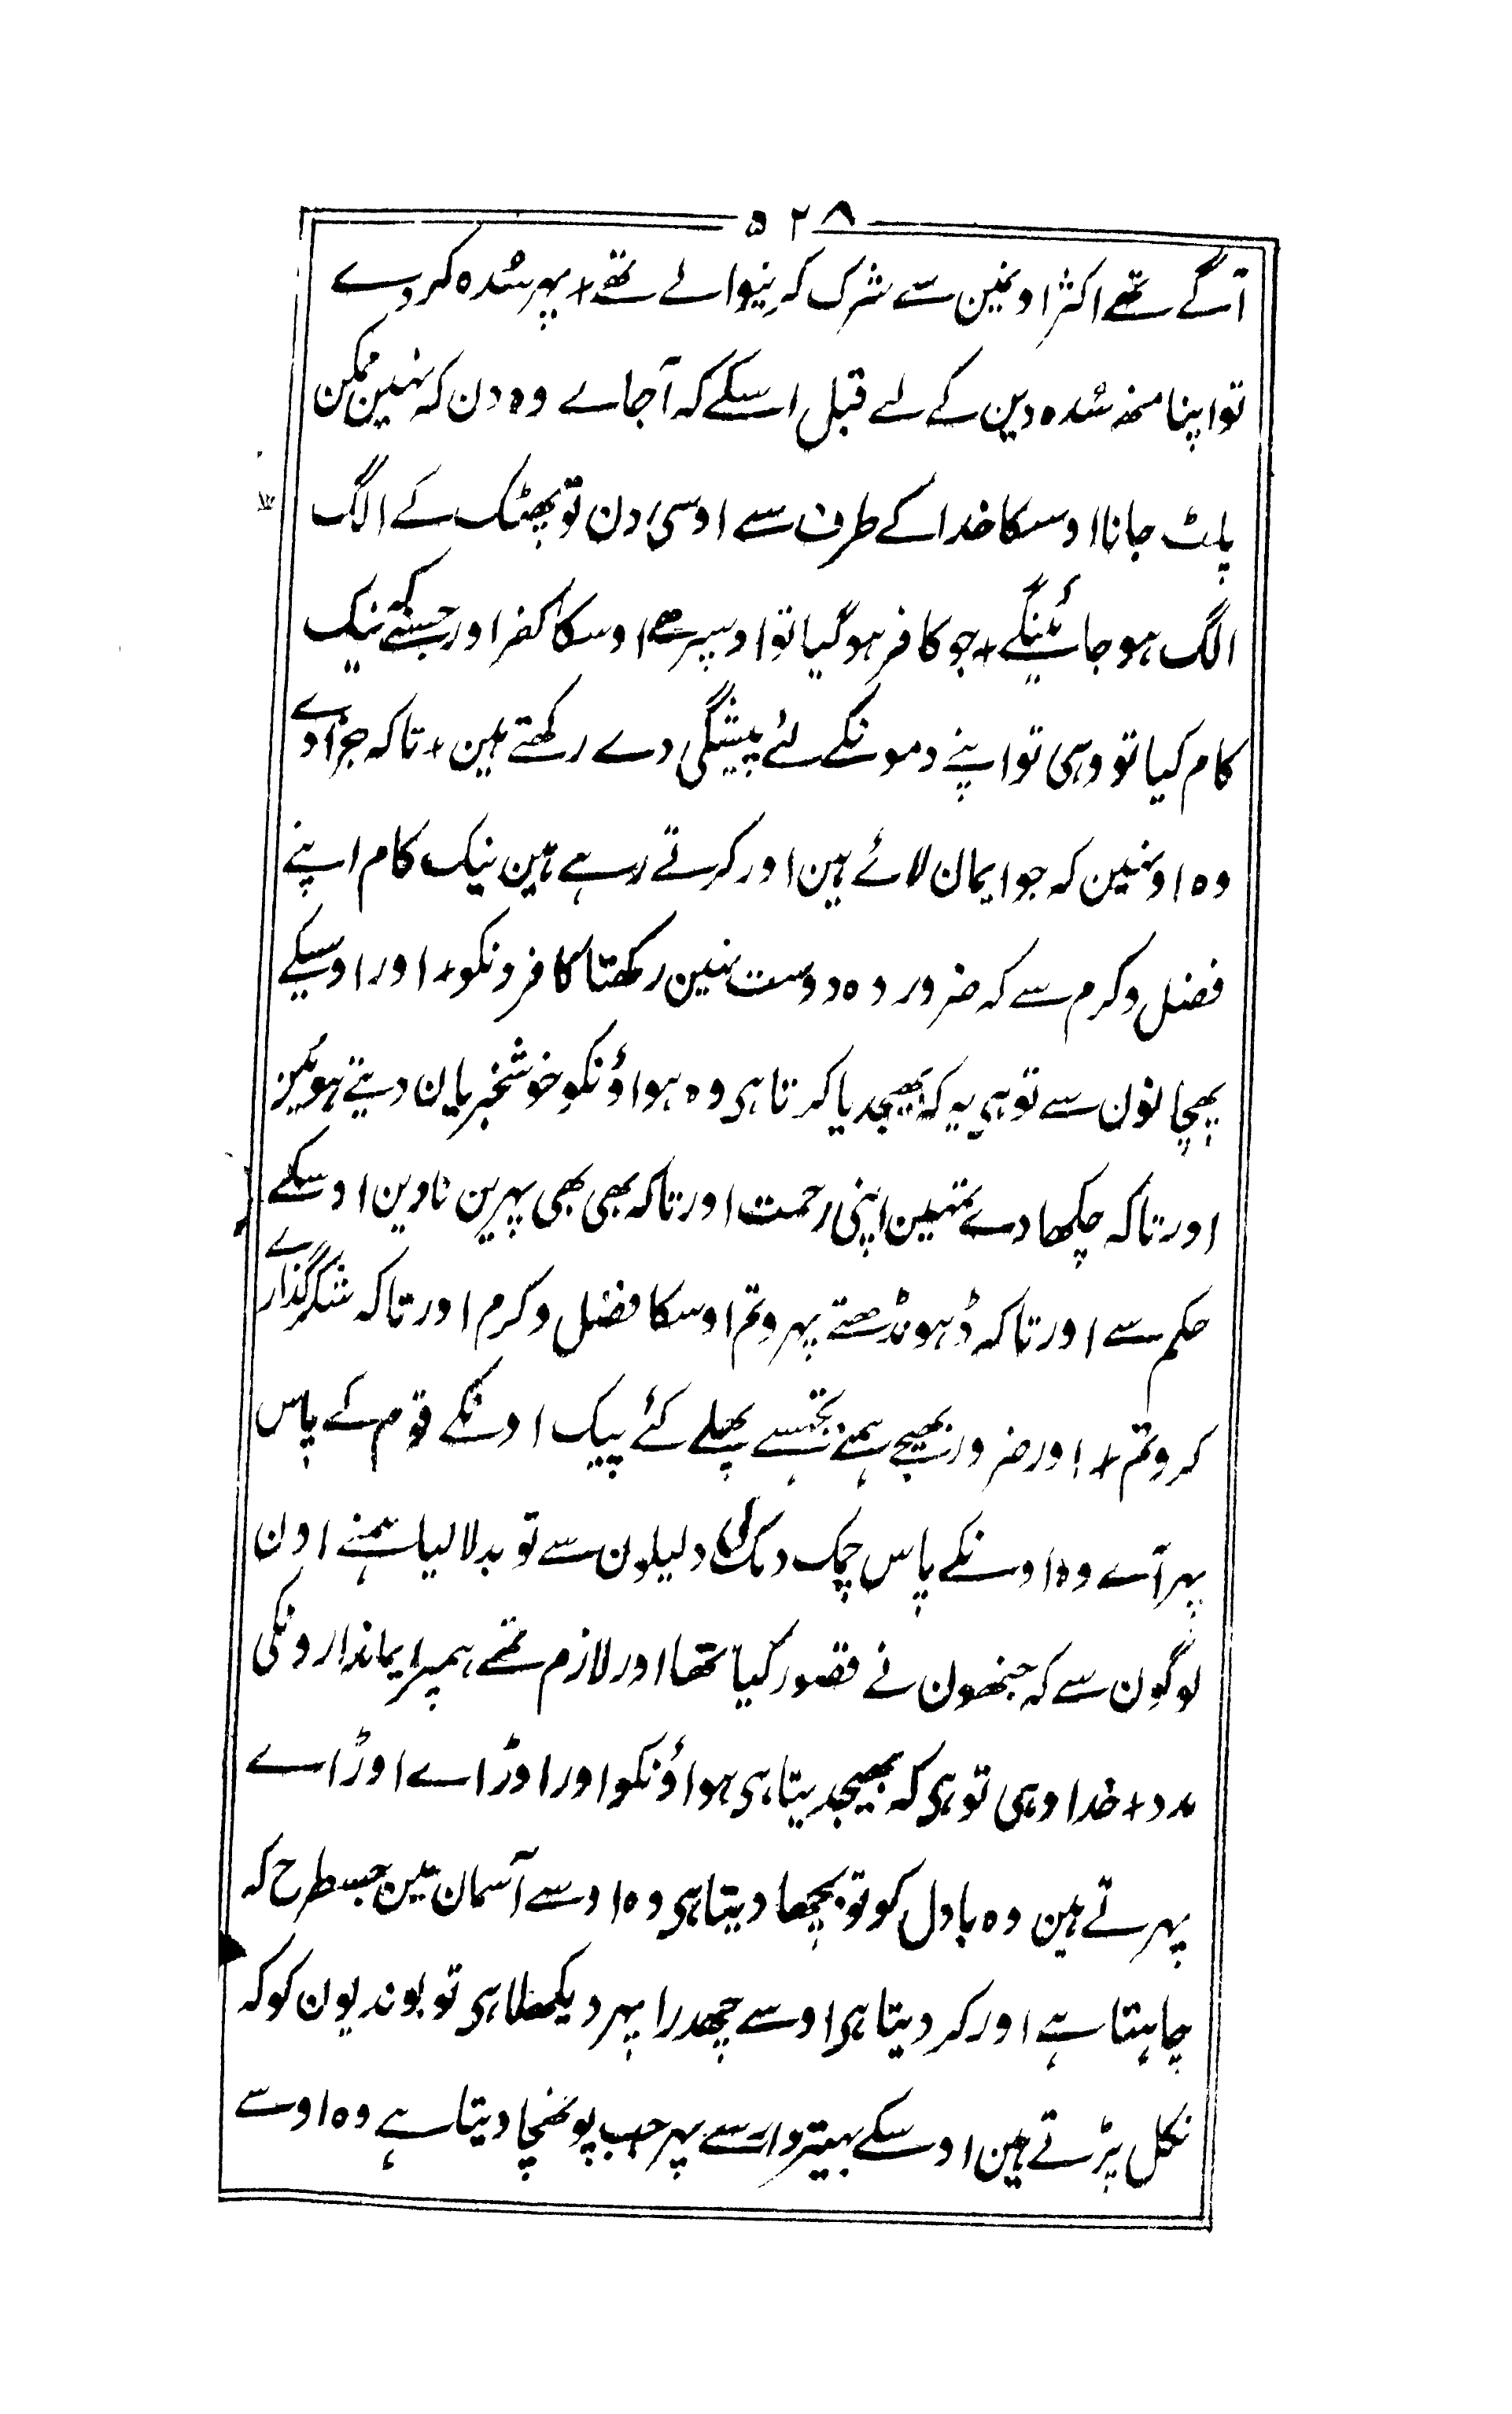 ۵۲۸
آگے تھے اکثر اونمین سے شرک کرنیوالے تھے + پہر سُدہ کردے
تو اپنا منھ سُدہ دین کے لے قبل اسکے کہ آجاے وہ دن کہ نہین ممکن
پلٹ جانا اوسکا خدا کے طرف سے اوسی دن تو پھٹک کے الگ
الگ ہو جائینگے + جو کافر ہو گیا تو اوسپر ھے اوسکا کفر اور جسنے کہ نیک
کام کیا تو وہی تو اپنے دمونکے لئے پیشگی دے رکھتے ہین + تاکہ جزا دے
وہ اونہین کہ جو ایمان لائے ہین اور کرتے رہے ہین نیک کام اپنے
فضل و کرم سے کہ ضرور وہ دوست نہین رکھتا کافرونکو + اور اوسیکے
پہچانون سے تو ہی یہ کہ بھیجدیا کرتا ہی وہ ہواؤنکو خوشخبریان دیتے ہوئین
اور تاکہ چکھا دے تمہین اپنی رحمت اور تاکہ بھی بھی پہرین ناوین اوسکے
حکم سے اور تاکہ ڈہونڈھتے پہرو تم اوسکا فضل و کرم اور تاکہ شکر گذارے
کرو تم + اور ضرور بھیجے ہمنے تجھسے پھلے کئے پیک اونکے قوم کے پاس
پہر آے وہ اونکے پاس چمک دمک کی دلیلون سے تو بدلا لیا ہمنے اون
لوگون سے کہ جنھون نے قصور کیا تھا اور لازم تھے ہمپر ایماندارونکی
مدد + خدا وہی تو ہی کہ بھیجدیتا ہی ہواؤنکو اور اوڑاے اوڑاے
پہرتے ہین وہ بادل کو تو بچھا دیتا ہی وہ اوسے آسمان مین جسطرح کہ
چاہتا ہے اور کر دیتا ہی اوسے چھدرا پہر دیکھتا ہی تو بوندیون کو کہ
نکل پڑتے ہین اوسکے بہیتر وار سے پہر جب پونھچا دیتا ہے وہ اوسے